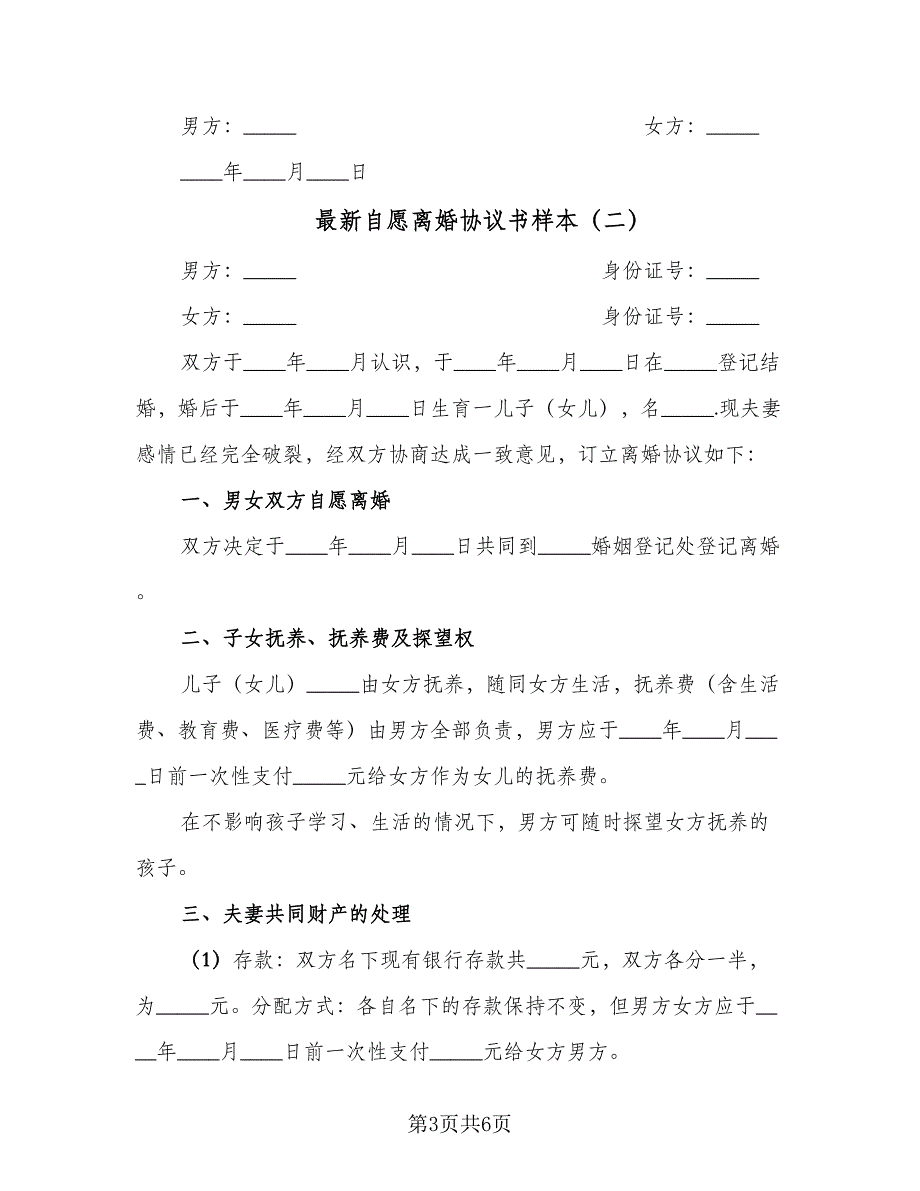 男方：_____ 女方：_____
____年____月____日
最新自愿离婚协议书样本（二）
男方：_____ 身份证号：_____
女方：_____ 身份证号：_____
双方于____年____月认识，于____年____月____日在_____登记结
婚，婚后于____年____月____日生育一儿子（女儿），名_____.现夫妻
感情已经完全破裂，经双方协商达成一致意见，订立离婚协议如下：
一、男女双方自愿离婚
双方决定于____年____月____日共同到_____婚姻登记处登记离婚
。
二、子女抚养、抚养费及探望权
儿子（女儿）_____由女方抚养，随同女方生活，抚养费（含生活
费、教育费、医疗费等）由男方全部负责，男方应于____年____月___
_日前一次性支付_____元给女方作为女儿的抚养费。
在不影响孩子学习、生活的情况下，男方可随时探望女方抚养的
孩子。
三、夫妻共同财产的处理
（1）存款：双方名下现有银行存款共_____元，双方各分一半，
为_____元。分配方式：各自名下的存款保持不变，但男方女方应于__
__年____月____日前一次性支付_____元给女方男方。
第3页共6页